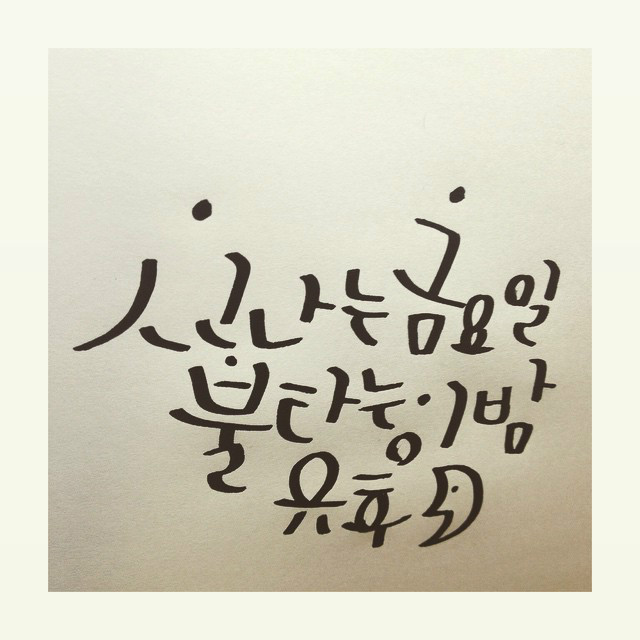 신나는금요일
불타는이밤
유후